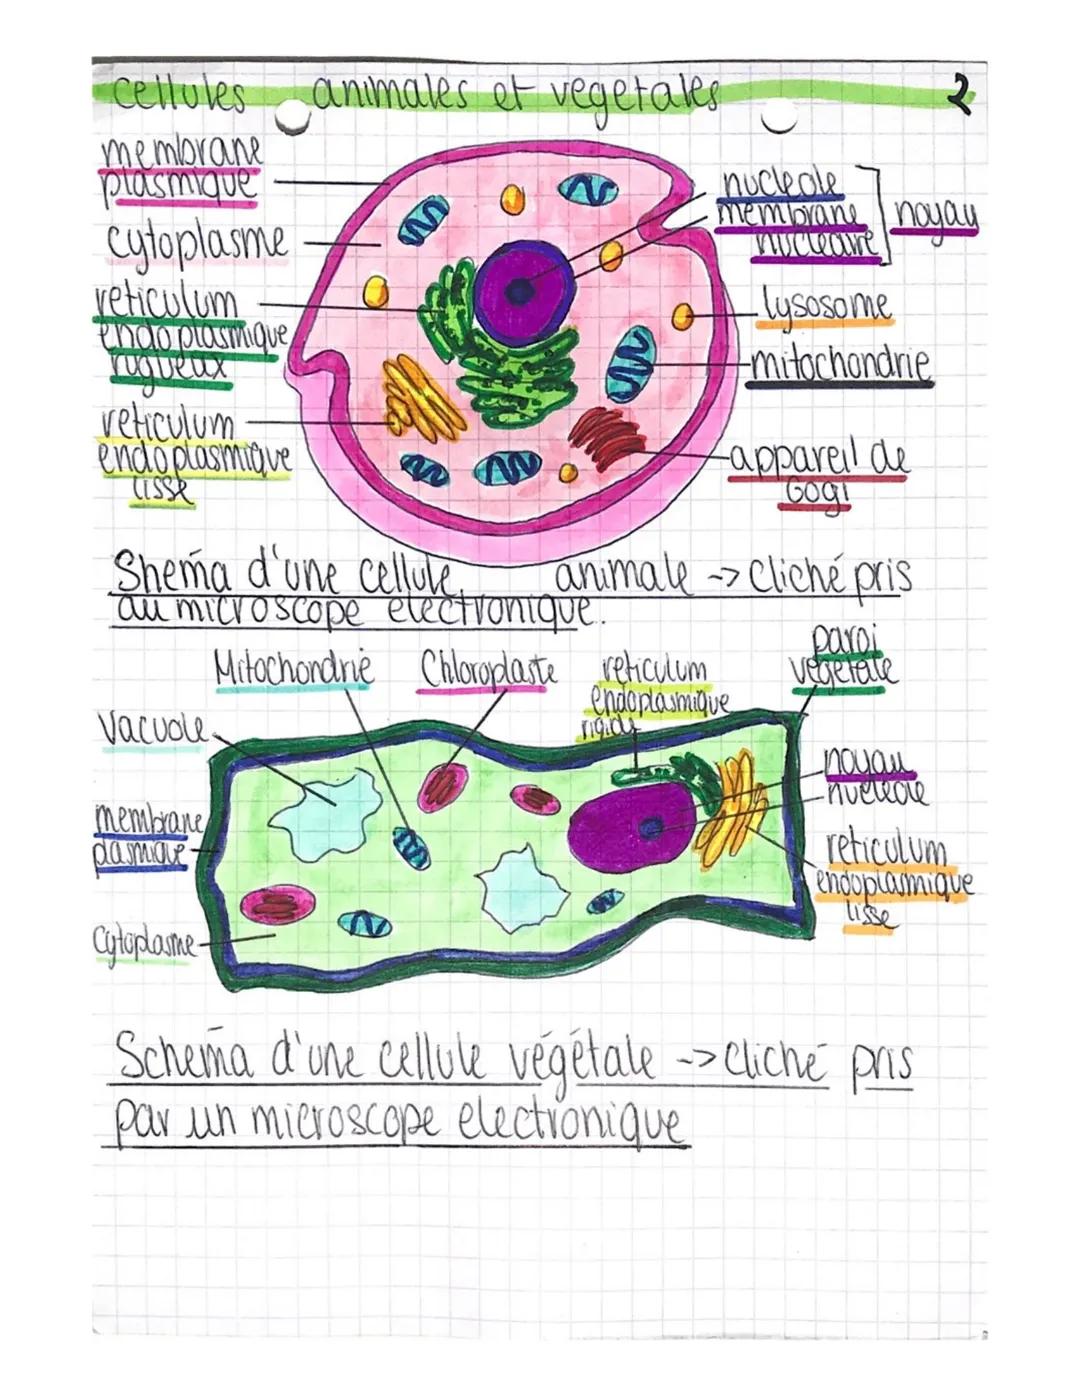 cellules animales et vegetales
2
membrane
plasmique
cytoplasme
reticulum
endoplasmique
rugueux
reticulum
endoplasmique
lisse
nucleole
membrane
nucleaire
noyau
lysosome
mitochondrie
appareil de
Gogi
Shema d'une cellule animale -> cliché pris
au microscope electronique.
Mitochondrie
Chloroplaste
reticulum
endoplasmique
paroi
vegetale
Vacuole
membrane
plasmique
Cytoplasme
noyau
nucleole
reticulum
endoplasmique
lisse
Schema d'une cellule végétale -> cliché pris
par un microscope electronique